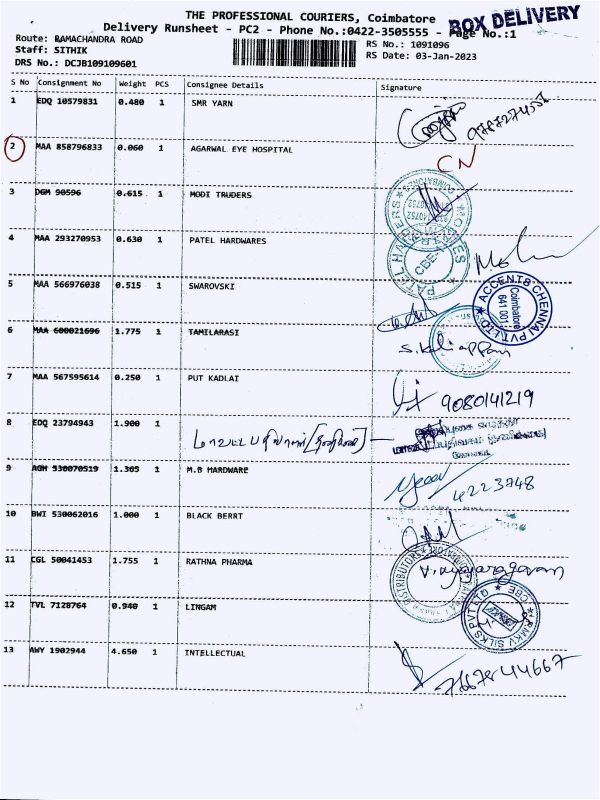 THE PROFESSIONAL COURIERS, Coimbatore
BOX DELIVERY
Delivery Runsheet - PC2 - Phone No.:0422-3505555 - Page No.:1
Route: RAMACHANDRA ROAD
RS No.: 1091096
Staff: SITHIK
RS Date: 03-Jan-2023
DRS No.: DCJB109109601
S No Consignment No Weight PCS Consignee Details Signature
1 EDQ 10579831 0.480 1 SMR YARN
2 MAA 858796833 0.060 1 AGARWAL EYE HOSPITAL CN
3 DGM 90596 0.615 1 MODI TRUDERS
4 MAA 293270953 0.630 1 PATEL HARDWARES
5 MAA 566976038 0.515 1 SWAROVSKI
ACCENTS CHENNAI PVT.LTD
Coimbatore
6 MAA 600021696 1.775 1 TAMILARASI
S.Kaliappan
7 MAA 567595614 0.250 1 PUT KADLAI
9080141219
8 EDQ 23794943 1.900 1
9 AGM 530070519 1.305 1 M.B HARDWARE
4223748
10 BWI 530062016 1.000 1 BLACK BERRT
11 CGL 50041453 1.755 1 RATHNA PHARMA
Vijayaragavan
12 TVL 7128764 0.940 1 LINGAM
RMKV SILKS PVT LTD CBE
13 AWY 1902944 4.650 1 INTELLECTUAL